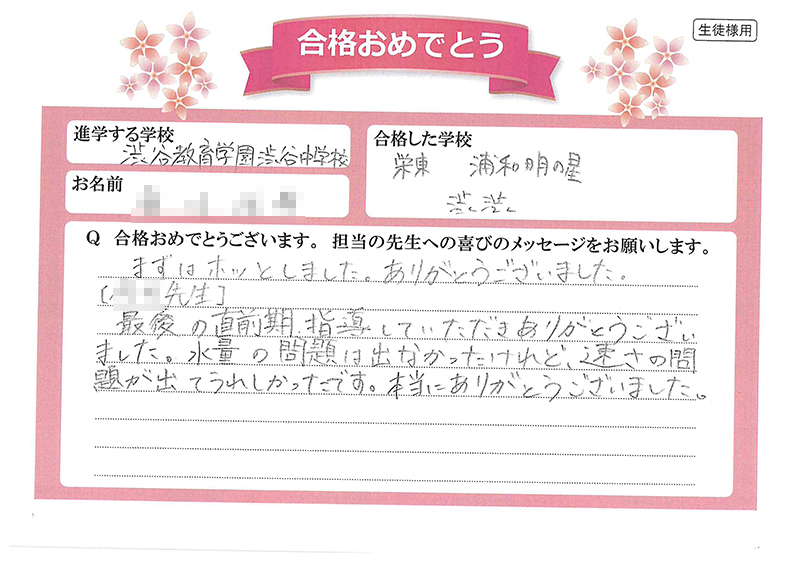 合格おめでとう
生徒様用
進学する学校
渋谷教育学園渋谷中学校
合格した学校
栄東 浦和明の星
渋渋
お名前
Q 合格おめでとうございます。担当の先生への喜びのメッセージをお願いします。
まずはホッとしました。ありがとうございました。
[先生]
最後の直前期、指導していただきありがとうござい
ました。水量の問題は出なかったけれど、速さの問
題が出てうれしかったです。本当にありがとうございました。